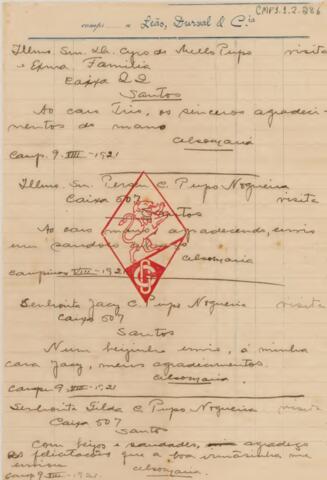 CMP1.1.2.286
Leão, Durval & Cia
Illmo. Snr. Dr. Cyro de Mello Pupo visita
e Exma Familia
Caixa 22
Santos
Ao caro Tio, os sinceros agradeci-
mentos do mano
Celsomaria
Camp. 9-VIII-1921
Illmo. Snr. C. Pupo Nogueira
Caixa 607 visita
Santos
Ao caro mano agradecendo, envio
um saudoso
Celsomaria
Campinas VIII-1921
Senhorita Jacy C. Pupo Nogueira visita
Caixa 607
Santos
Num beijinho envio, á minha
cara Jacy, meus agradecimentos.
Celsomaria
Camp. 9-VIII-1921
Senhorita Gilda C. Pupo Nogueira visita
Caixa 607
Santos
Com beijos e saudades, agradeço
as felicitações que a boa irmãsinha me
enviou
Celsomaria.
Camp. 9-VIII-1921.